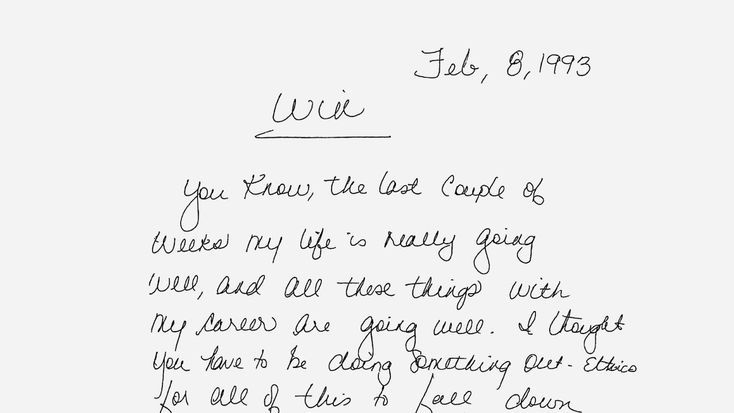 Feb, 8, 1993
Win
You Know, the last Couple of
Weeks my life is really going
Well, and all these things with
my career are going well. I thought
You have to be doing Something Out-Ethics
for all of this to fall down